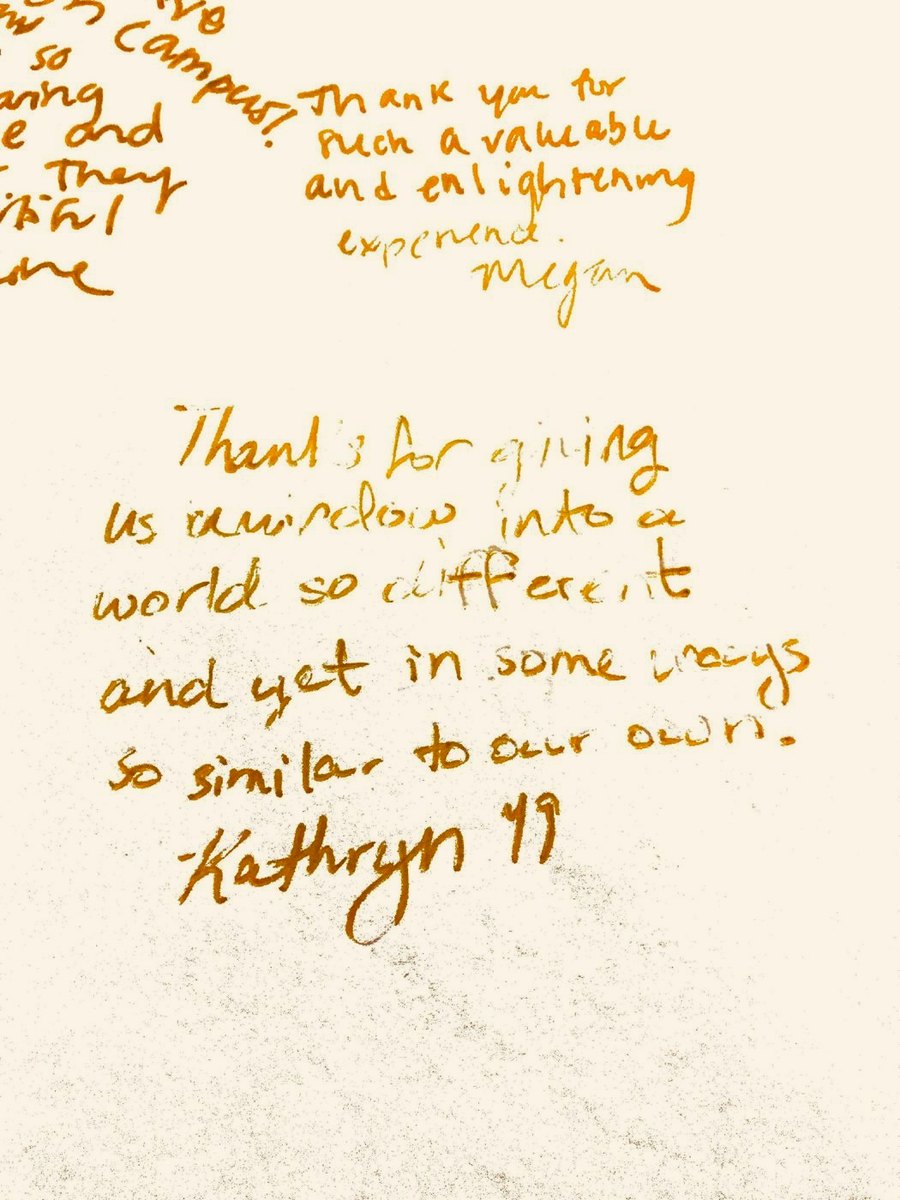 so
campus!
and
They
Thank you for
such a valuable
and enlightening
experience.
Megan
Thanks for giving
us a window into a
world so different
and yet in some ways
so similar to our own.
-Kathryn